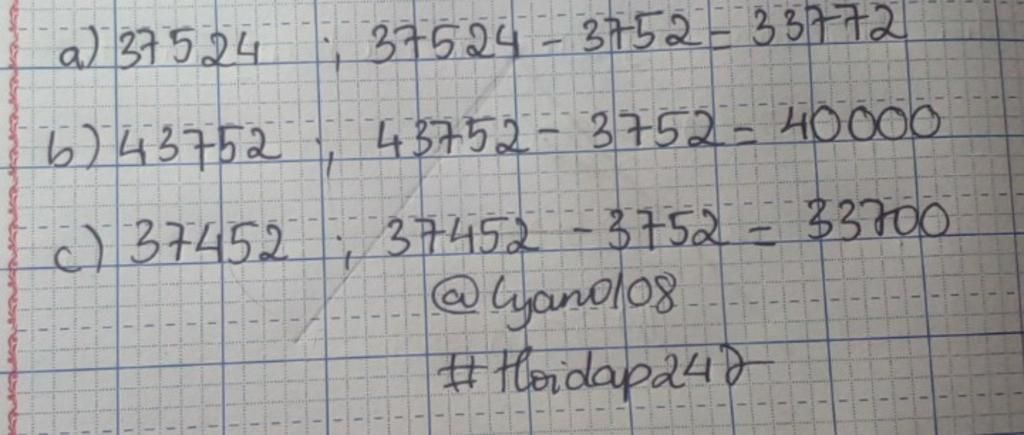 a) 37524 ; 37524 - 3752 = 33772
b) 43752 ; 43752 - 3752 = 40000
c) 37452 ; 37452 - 3752 = 33700
@lyan0108
#Hoidap247